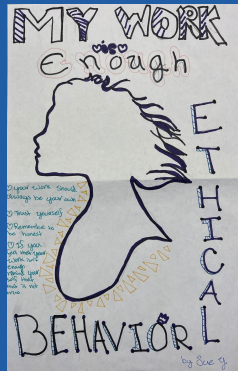 MY WORK
Enough
ETHICAL
♡ your work should
always be your own
♡ Trust yourself
♡ Remember to
be honest
♡ If you
work isn't
enough
your
self that
that is not
BEHAVIOR
by Sue g